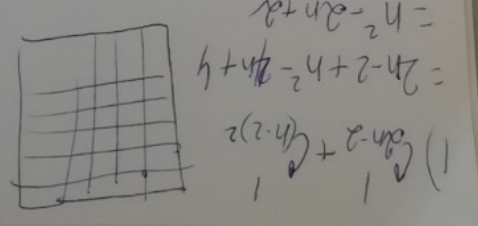 1) C¹₂ₙ₋₂ + C¹₍ₙ₋₂₎²
= 2n-2+n²-4n+4
= n²-2n+2